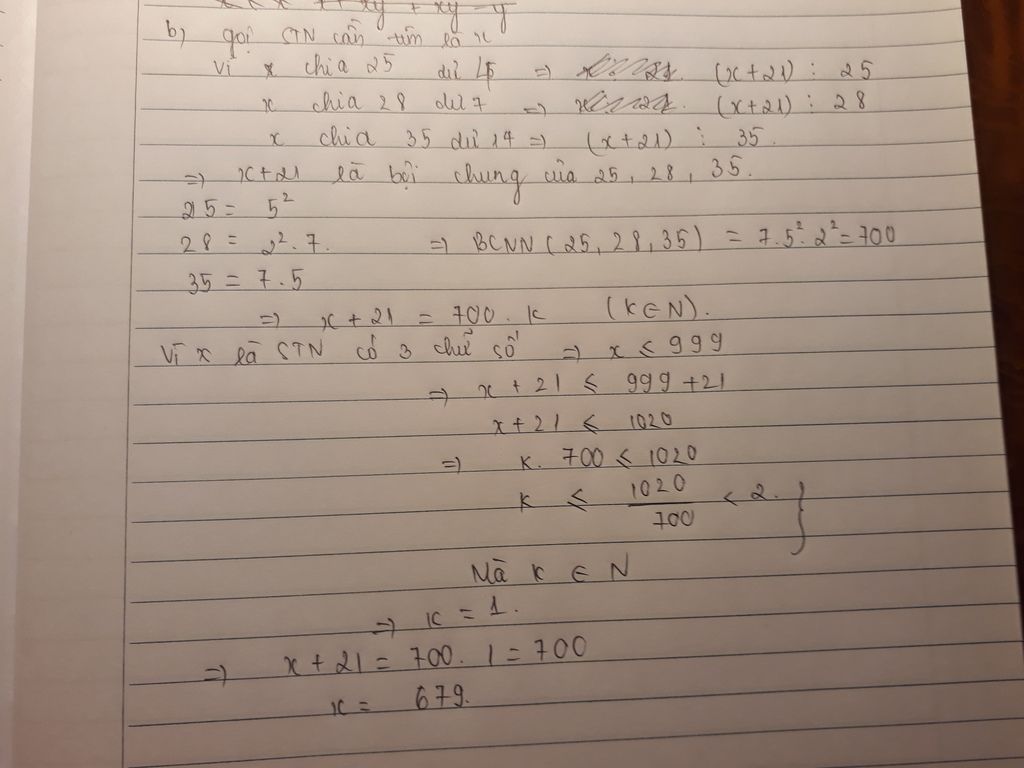 b) gọi STN cần tìm là x
Vì x chia 25 dư 4 => (x+21) ⋮ 25
x chia 28 dư 7 => (x+21) ⋮ 28
x chia 35 dư 14 => (x+21) ⋮ 35.
=> x+21 là bội chung của 25, 28, 35.
25 = 5²
28 = 2².7. => BCNN(25, 28, 35) = 7.5².2² = 700
35 = 7.5
=> x + 21 = 700. k (k∈N).
Vì x là STN có 3 chữ số => x ≤ 999
=> x + 21 ≤ 999 +21
x+21 ≤ 1020
=> k. 700 ≤ 1020
k ≤ 1020/700 < 2. }
Mà k ∈ N
=> k = 1.
=> x + 21 = 700. 1 = 700
x = 679.